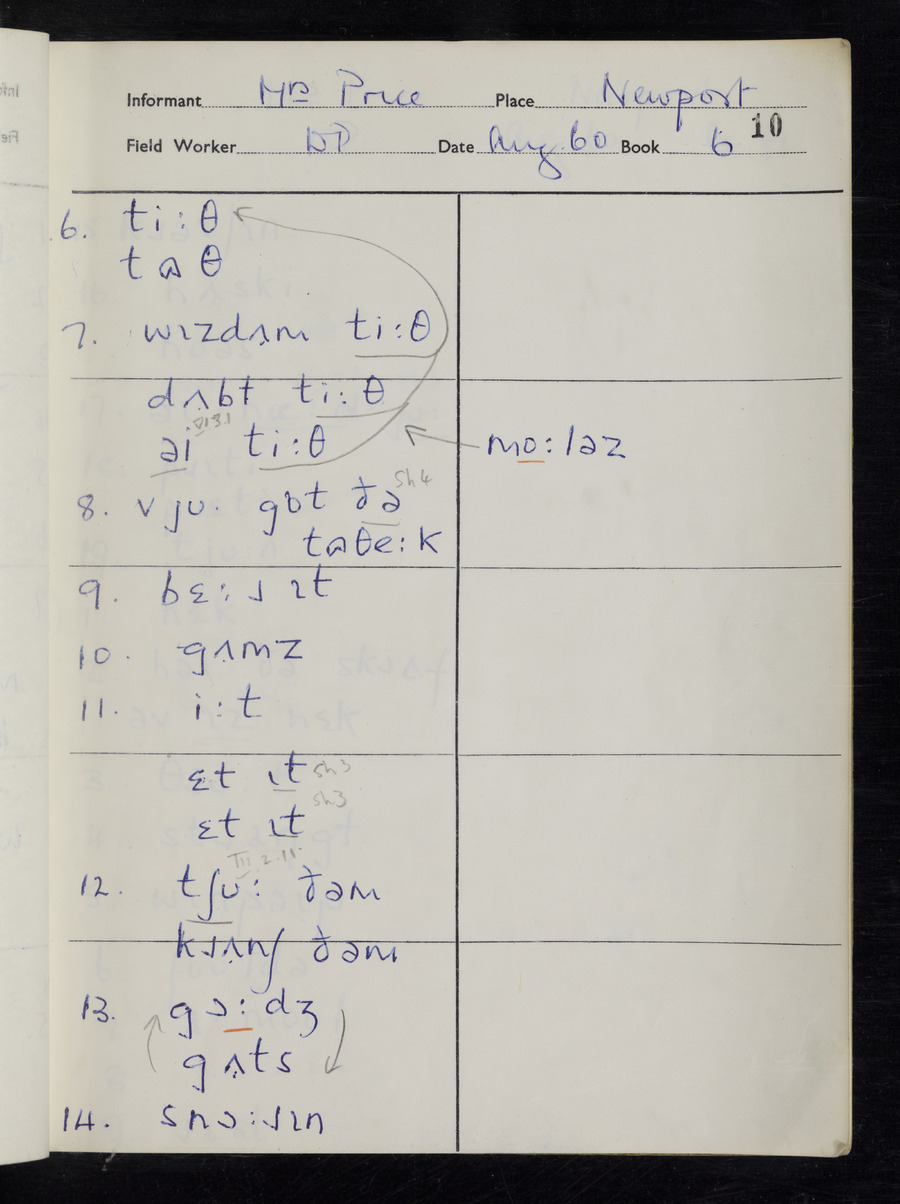 Informant Mrs Price Place Newport
10
Field Worker DP Date Aug 60 Book 6
6. ti:θ
tɷθ
7. wɪzdʌm ti:θ
dʌbt ti:θ
VI 3.1
əi ti:θ
mo:ləz
8. v ju· gɒt ðə sh4
tɷθe:k
9. bɛ:ɹɪt
10. gʌmz
11. i:t
ɛt ɪt sh3
ɛt ɪt sh3
III 2.11
12. tʃu: ðəm
kɹʌnʃ ðəm
13. gɔ:dʒ
gʌts
14. snɔ:ɹɪn